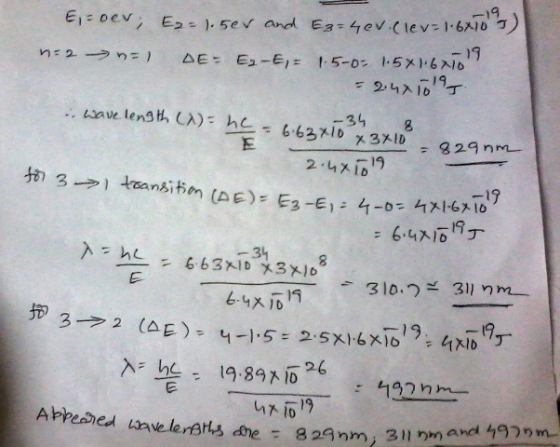 E₁=0ev; E₂=1.5ev and E₃=4ev.(1ev=1.6x10⁻¹⁹J)
n=2 → n=1 ΔE= E₂-E₁= 1.5-0= 1.5x1.6x10⁻¹⁹
= 2.4x10⁻¹⁹J
∴ wavelength (λ)= hc/E = 6.63x10⁻³⁴x3x10⁸/2.4x10⁻¹⁹ = 829nm
for 3→1 transition (ΔE)= E₃-E₁= 4-0= 4x1.6x10⁻¹⁹
= 6.4x10⁻¹⁹J
λ= hc/E = 6.63x10⁻³⁴x3x10⁸/6.4x10⁻¹⁹ = 310.7≅ 311nm
for 3→2 (ΔE)= 4-1.5= 2.5x1.6x10⁻¹⁹= 4x10⁻¹⁹J
λ= hc/E = 19.89x10⁻²⁶/4x10⁻¹⁹ = 497nm
Appeared wavelengths are = 829nm, 311nm and 497nm